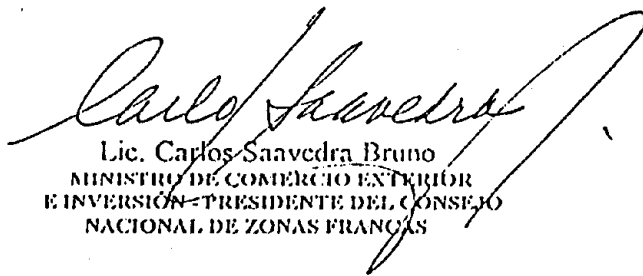 Carlos Saavedra
Lic. Carlos Saavedra Bruno
MINISTRO DE COMERCIO EXTERIOR
E INVERSIÓN - PRESIDENTE DEL CONSEJO
NACIONAL DE ZONAS FRANCAS